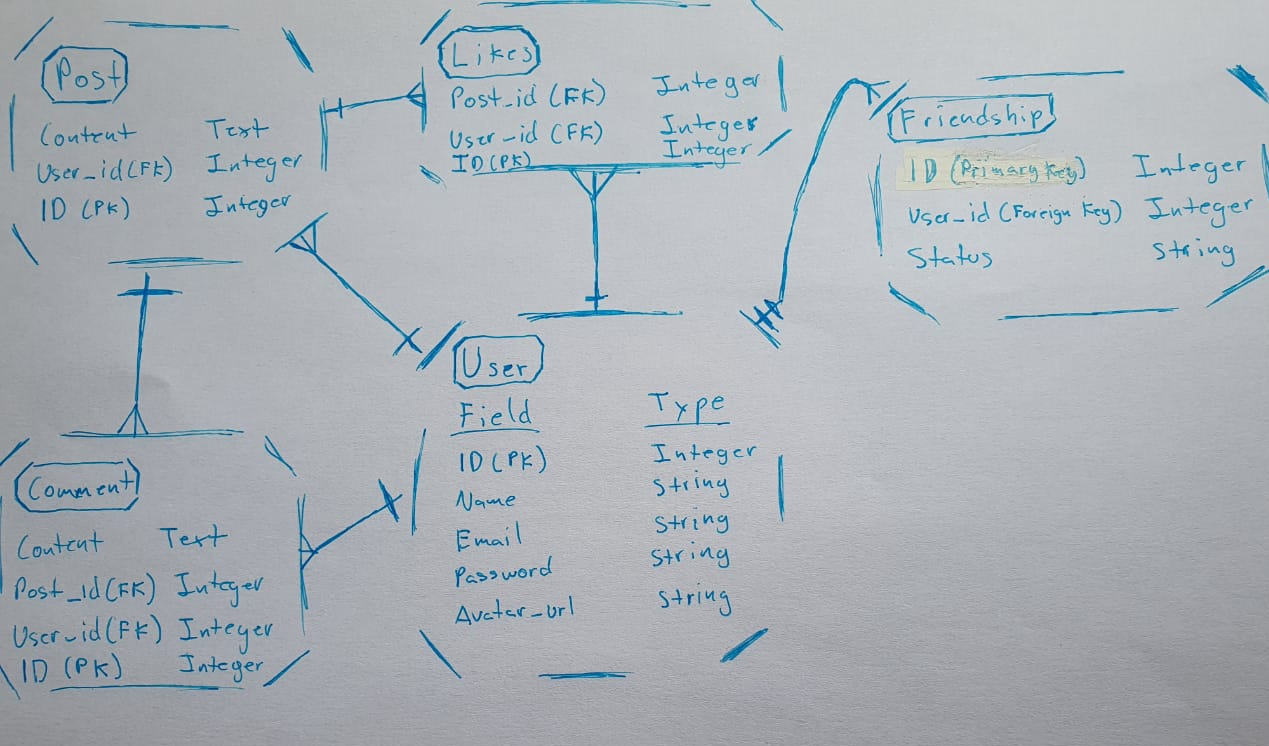 Post
Content Text
User_id(FK) Integer
ID (PK) Integer
Likes
Post_id (FK) Integer
User_id (FK) Integer
ID (PK) Integer
Friendship
ID (Primary Key) Integer
User_id (Foreign Key) Integer
Status String
User
Field Type
ID (PK) Integer
Name String
Email String
Password String
Avatar_url String
Comment
Content Text
Post_id (FK) Integer
User_id (FK) Integer
ID (PK) Integer